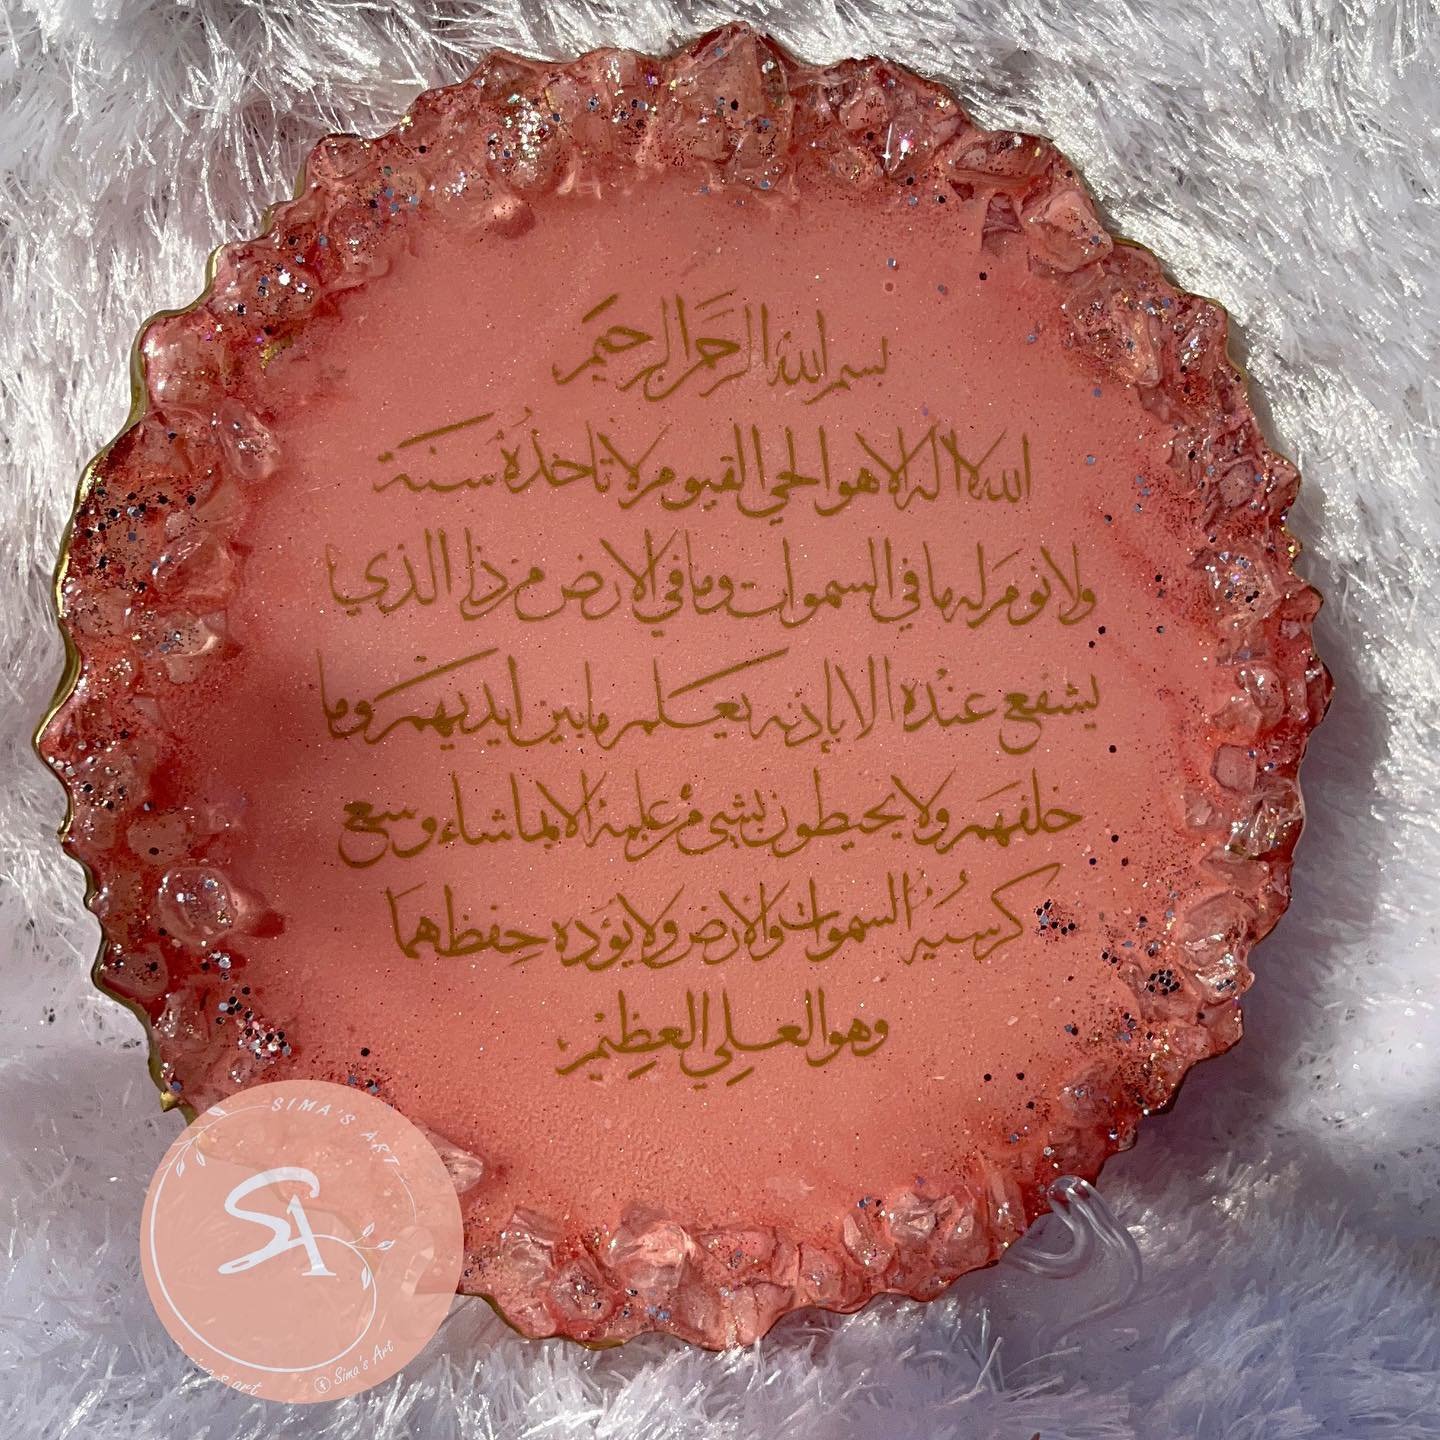 بسم الله الرحمن الرحيم
الله لا اله الا هو الحي القيوم لا تاخذهُ سنة
ولا نوم له ما في السموات وما في الارض من ذا الذي
يشفع عنده الا بإذنه يعلم ما بين ايديهم وما
خلفهم ولا يحيطون بشيء من علمه الا بما شاء وسع
كرسيهُ السموات والارض ولا يؤده حفظهما
وهو العلي العظيم
SIMA'S ART
SA
Sima's Art